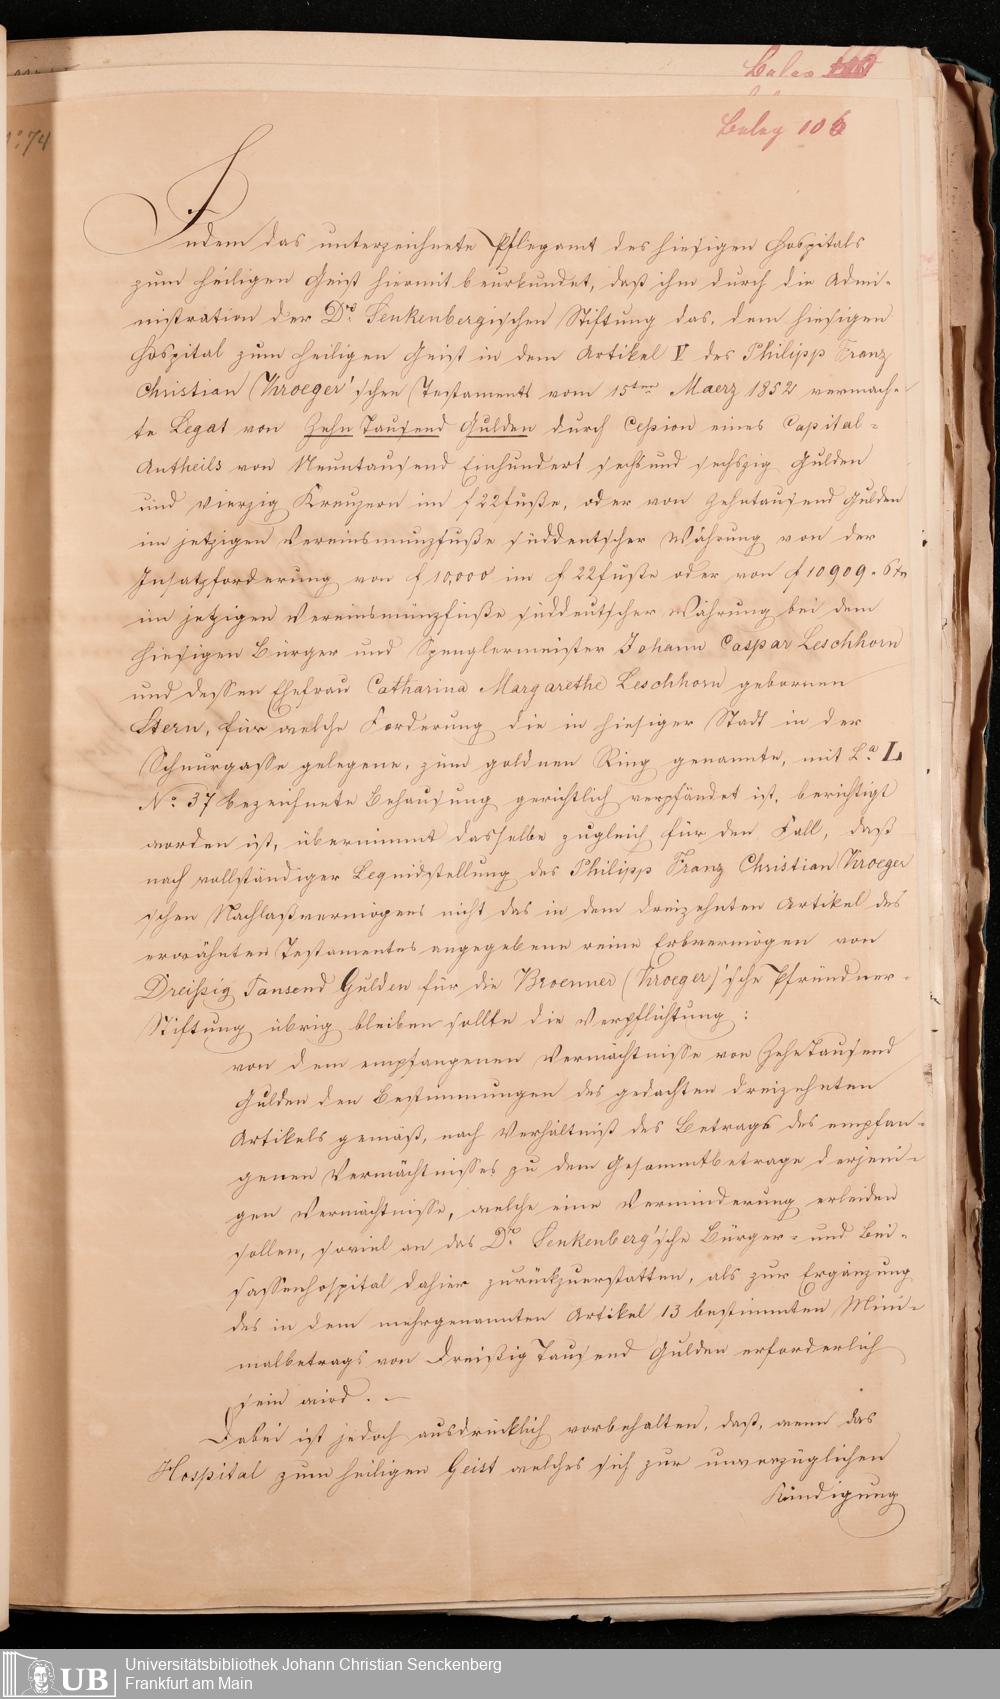 Beleg
Beleg 106
No. 74
Indem das unterzeichnete Pflegamt des hiesigen Hospitals
zum heiligen Geist hiermit beurkundet, daß ihm durch die Admi-
nistration der Dr. Senkenbergischen Stiftung das, dem hiesigen
Hospital zum heiligen Geist in dem Artikel V des Philipp Franz
Christian Kroeger'schen Testaments vom 15ten Maerz 1852 vermach-
te Legat von Zehn Tausend Gulden durch Cession eines Capital-
Antheils von Neuntausend Einhundert sechs und sechszig Gulden
und vierzig Kreuzern im f 22fuße, oder von Zehntausend Gulden
im jetzigen Vereinsmünzfuße süddeutscher Währung von der
Insatzforderung von f 10,000 im f 22fuße oder von f 10909. 6
im jetzigen Vereinsmünzfuße süddeutscher Währung bei dem
hiesigen Bürger und Spenglermeister Johann Caspar Leschhorn
und dessen Ehefrau Catharina Margarethe Leschhorn gebornen
Stern, für welche Forderung die in hiesiger Stadt in der
Schnurgasse gelegene, zum goldnen Ring genannte, mit La. L
No. 37 bezeichnete Behausung gerichtlich verpfändet ist, berichtigt
worden ist, übernimmt dasselbe zugleich für den Fall, daß
nach vollständiger Liquidstellung des Philipp Franz Christian Kroeger
'schen Nachlaßvermögens nicht das in dem dreizehnten Artikel des
erwähnten Testamentes angegebene reine Erbvermögen von
Dreißig Tausend Gulden für die Broenner (Kroeger)'sche Pfründner-
Stiftung übrig bleiben sollte die Verpflichtung:
von dem empfangenen Vermächtnisse von Zehn Tausend
Gulden den Bestimmungen des gedachten dreizehnten
Artikels gemäß, nach Verhältniß des Betrags des empfan-
genen Vermächtnisses zu dem Gesammtbetrage derjeni-
gen Vermächtnisse, welche eine Verminderung erleiden
sollen, soviel an das Dr. Senkenberg'sche Bürger- und Bei-
sassenhospital dahier zurückzuerstatten, als zur Ergänzung
des in dem mehrgenannten Artikel 13 bestimmten Mini-
malbetrags von Dreißig Tausend Gulden erforderlich
sein wird. -
Dabei ist jedoch ausdrücklich vorbehalten, daß, wenn das
Hospital zum heiligen Geist welches sich zur unverzüglichen
Kündigung
UB
Universitätsbibliothek Johann Christian Senckenberg
Frankfurt am Main